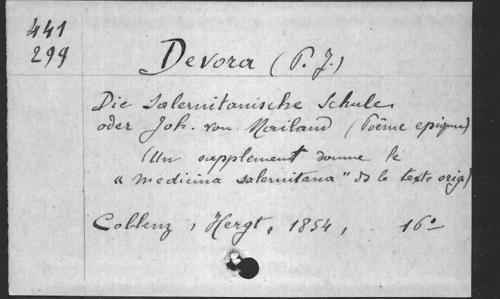 441
299
Devora (P. J.)
Die Salernitanische Schule
oder Joh. von Mailand (Poême epique)
(Un supplement donne le
" medicina salernitana " ds le texte orig)
Coblenz, Hergt, 1854, 16°